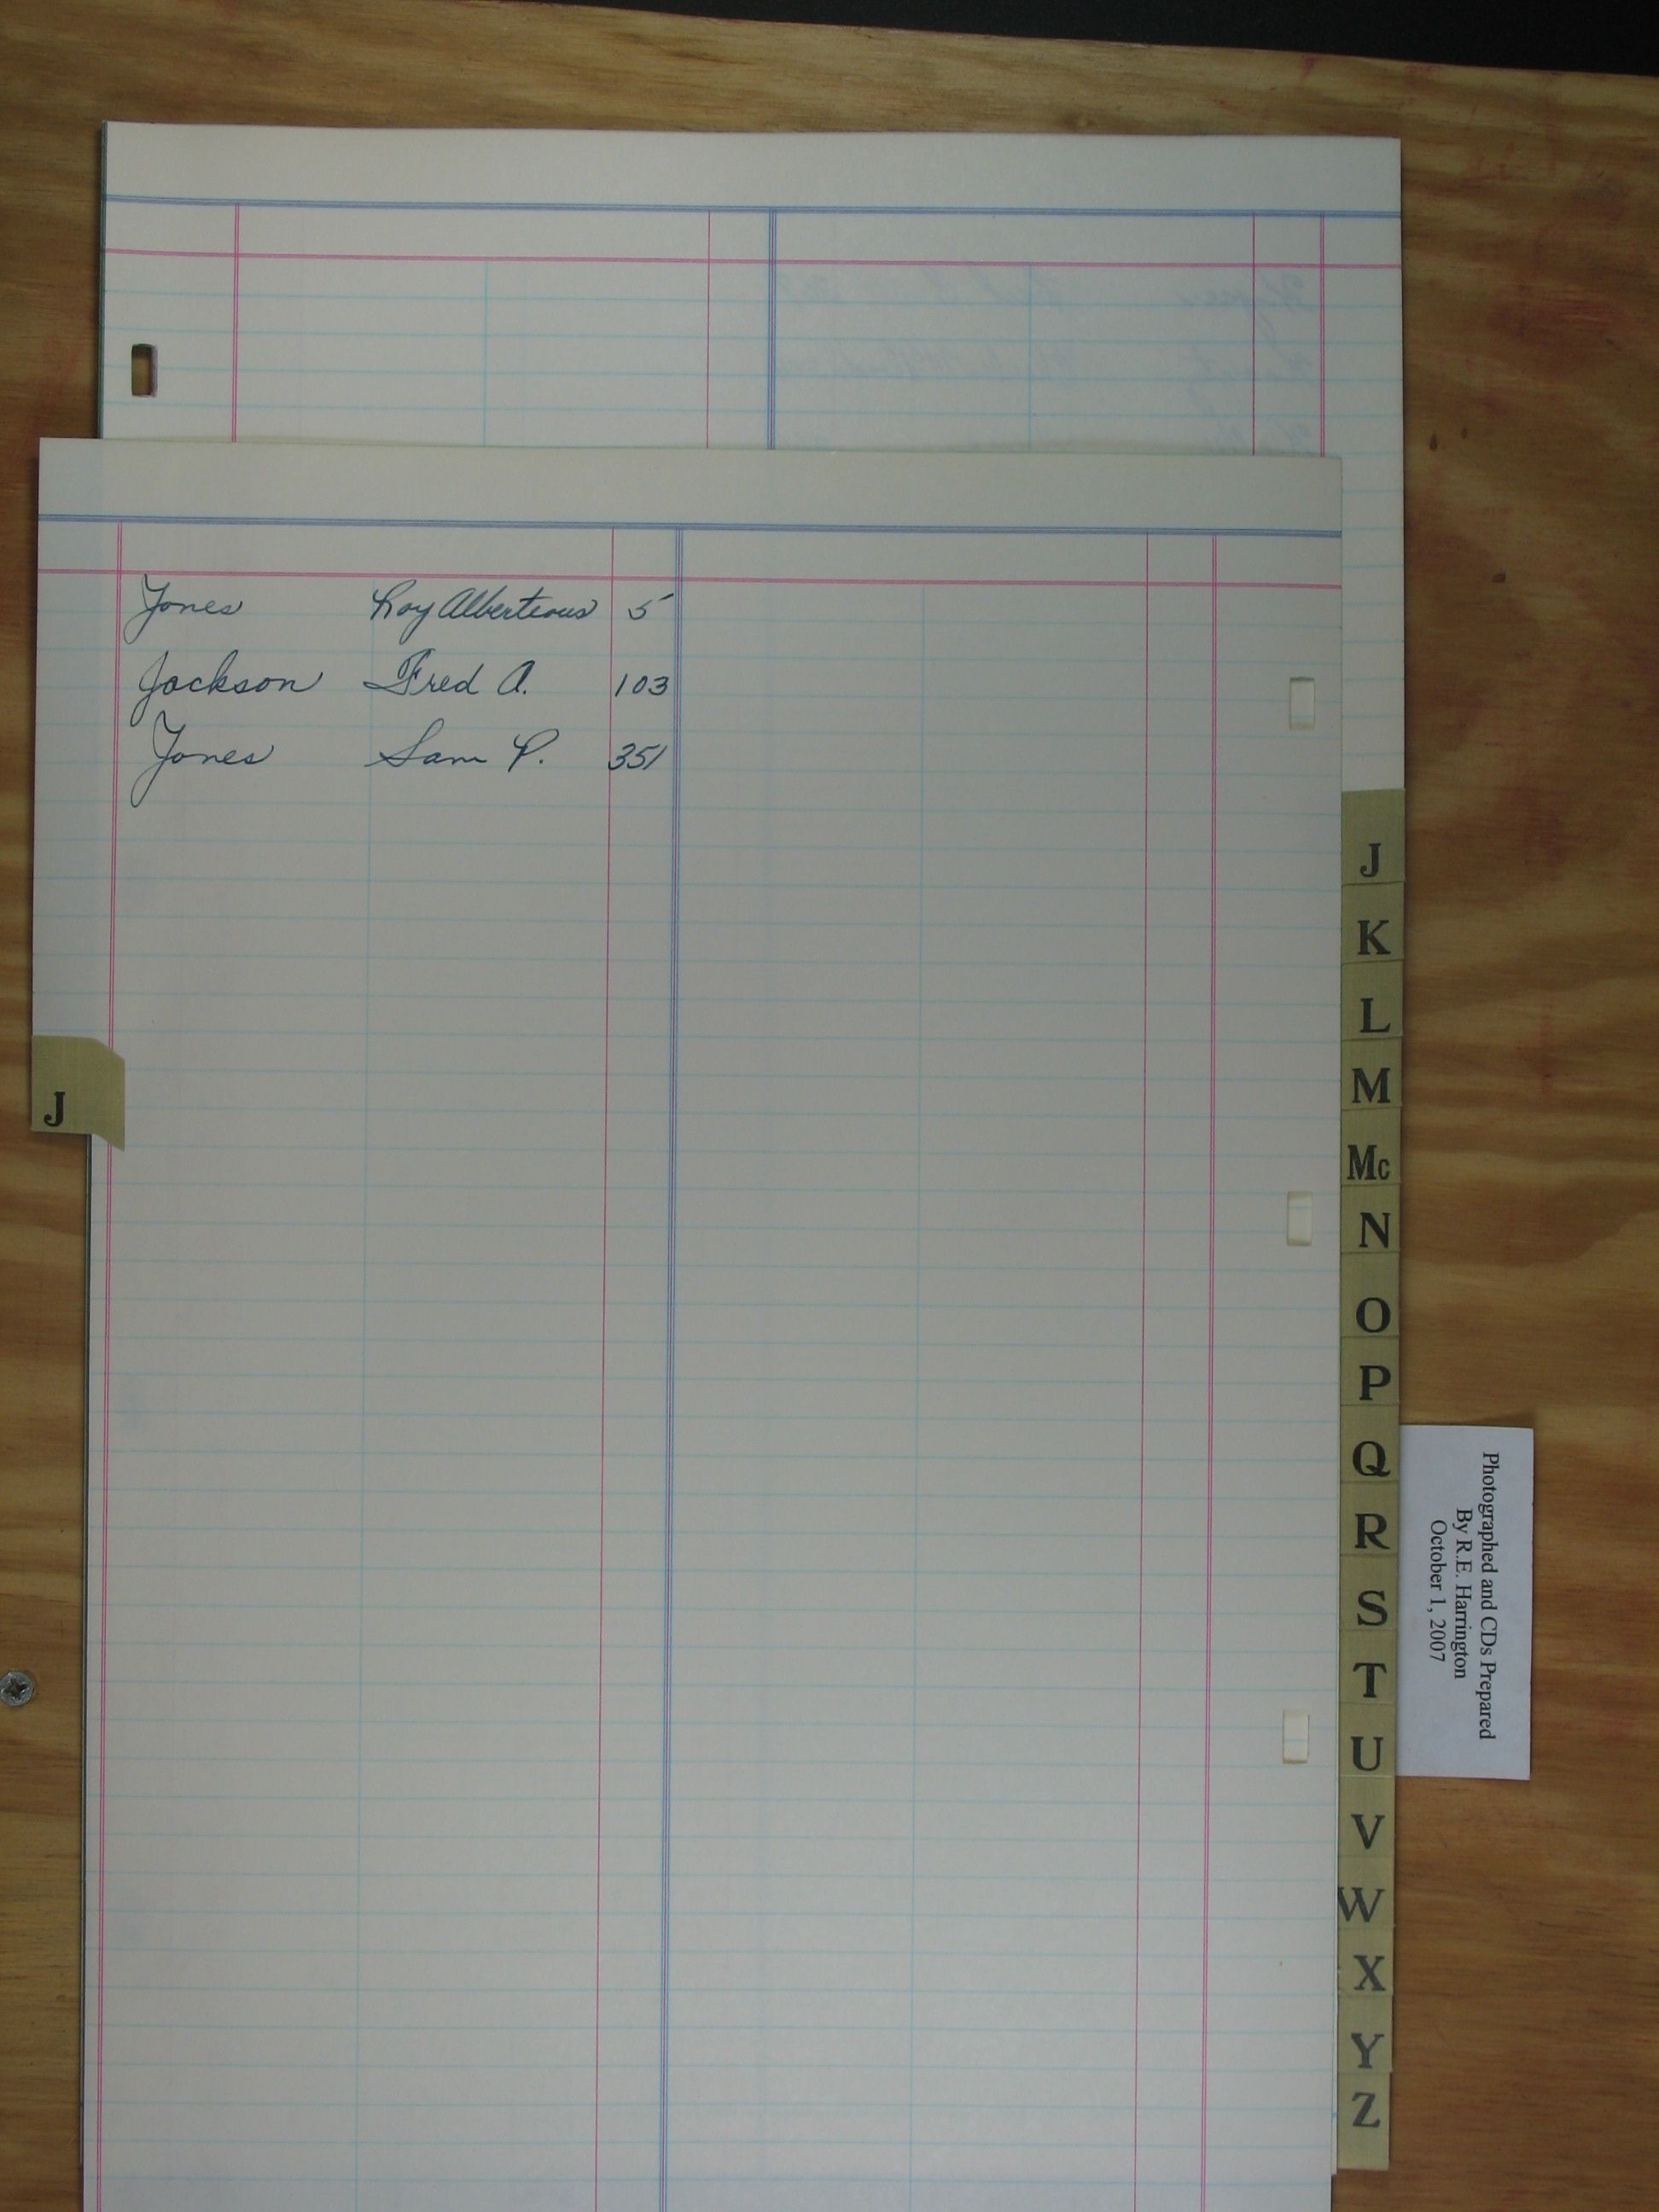 Jones Roy Alberteous 5
Jackson Fred A. 103
Jones Sam P. 351
J
J
K
L
M
Mc
N
O
P
Q
R
S
T
U
V
W
X
Y
Z
Photographed and CDs Prepared
By R.E. Harrington
October 1, 2007